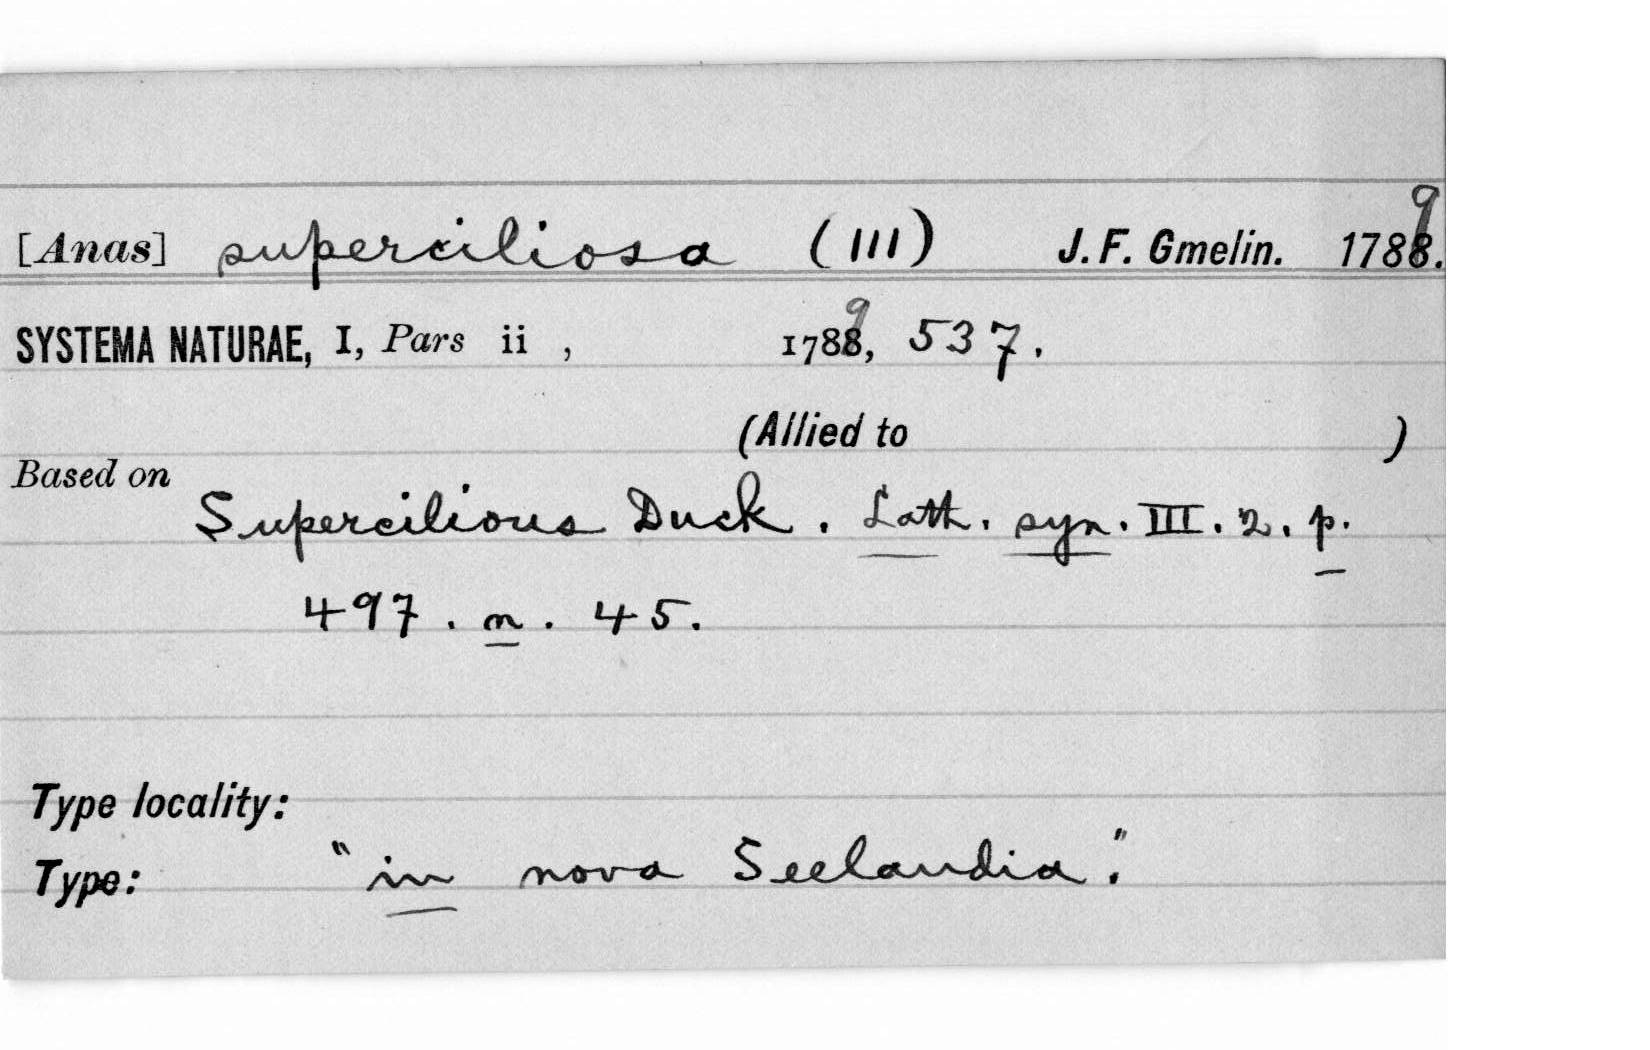 [Anas] superciliosa (111) J. F. Gmelin. 1789.
SYSTEMA NATURAE, I, Pars ii , 1789, 537.
(Allied to )
Based on
Supercilious Duck. Lath. syn. III. 2. p.
497. n. 45.
Type locality:
Type: "in nova Seelandia."